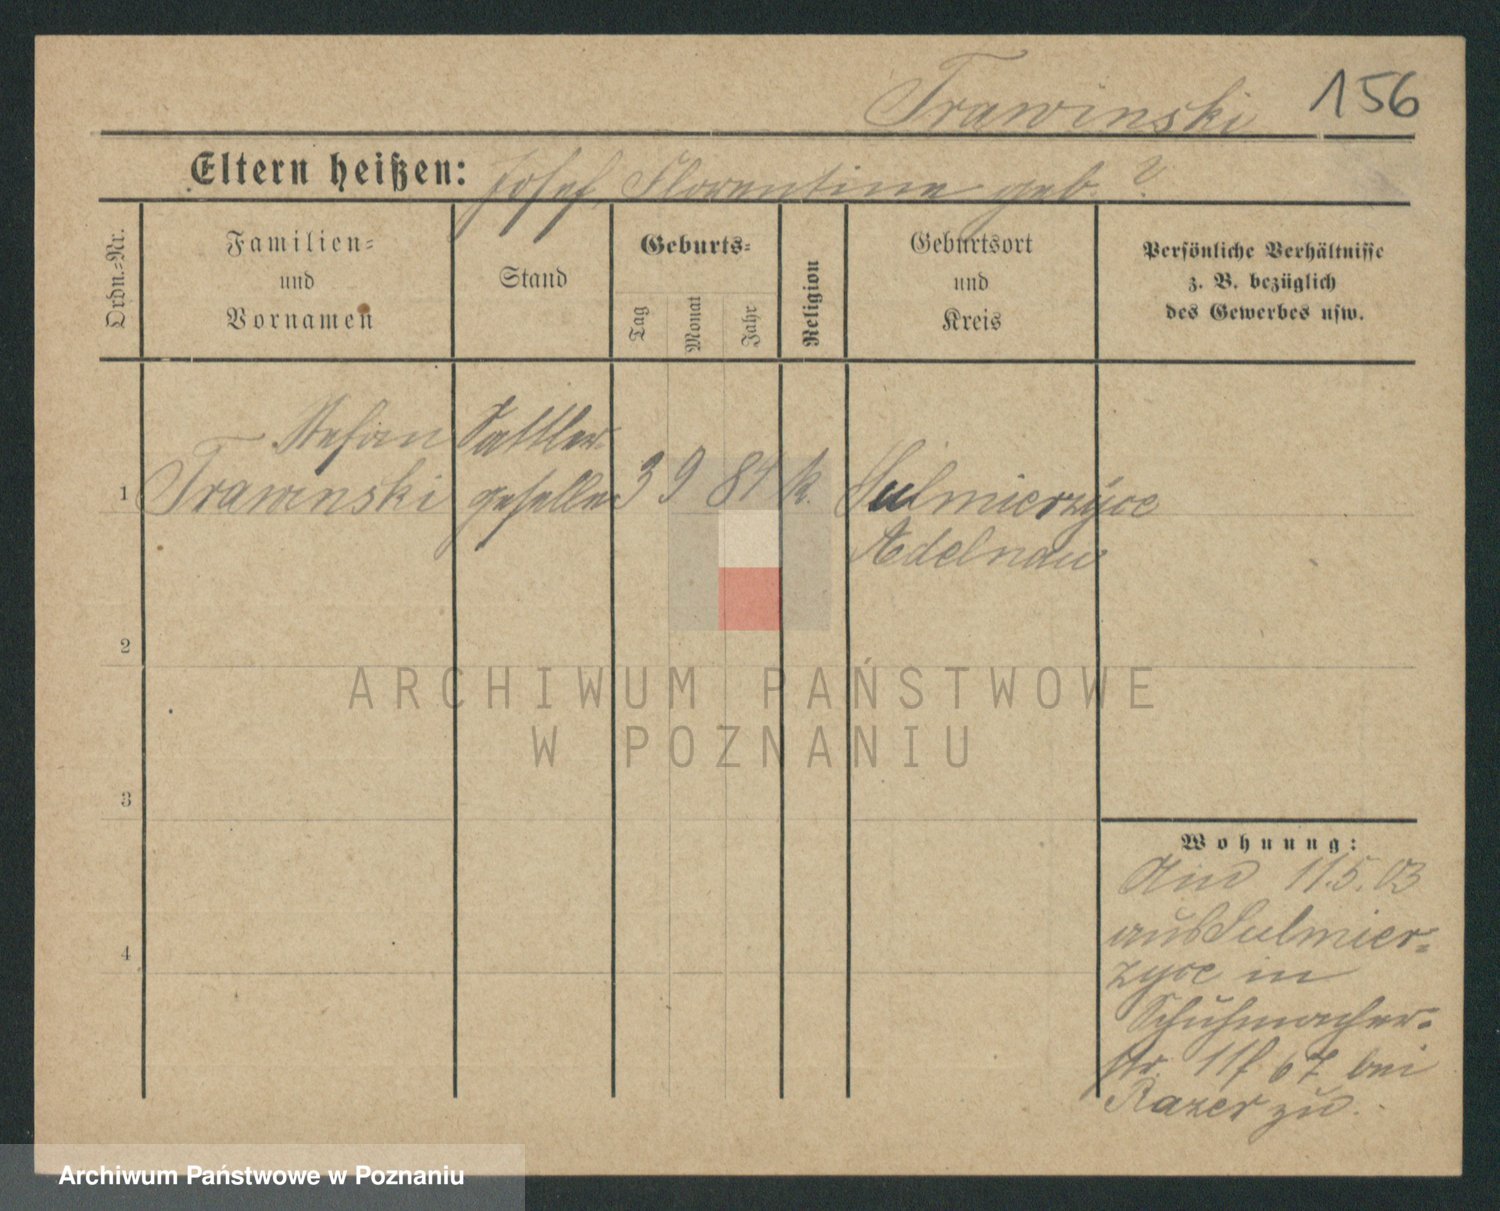 Trawinski 156
Eltern heißen: Josef, Florentine geb. ?
Ordn.-Nr.
Familien-
und
Vornamen
Stand
Geburts-
Tag
Monat
Jahr
Religion
Geburtsort
und
Kreis
Persönliche Verhältnisse
z. B. bezüglich
des Gewerbes usw.
Stefan Sattler-
1 Trawinski geselle 3 9 84 k. Sulmierzyce
Adelnau
2
3
4
Wohnung:
11.5.03
aus Sulmier-
zyce in
Schuhmacher-
str. 11 bei
Razer zu.
ARCHIWUM PAŃSTWOWE
W POZNANIU
Archiwum Państwowe w Poznaniu